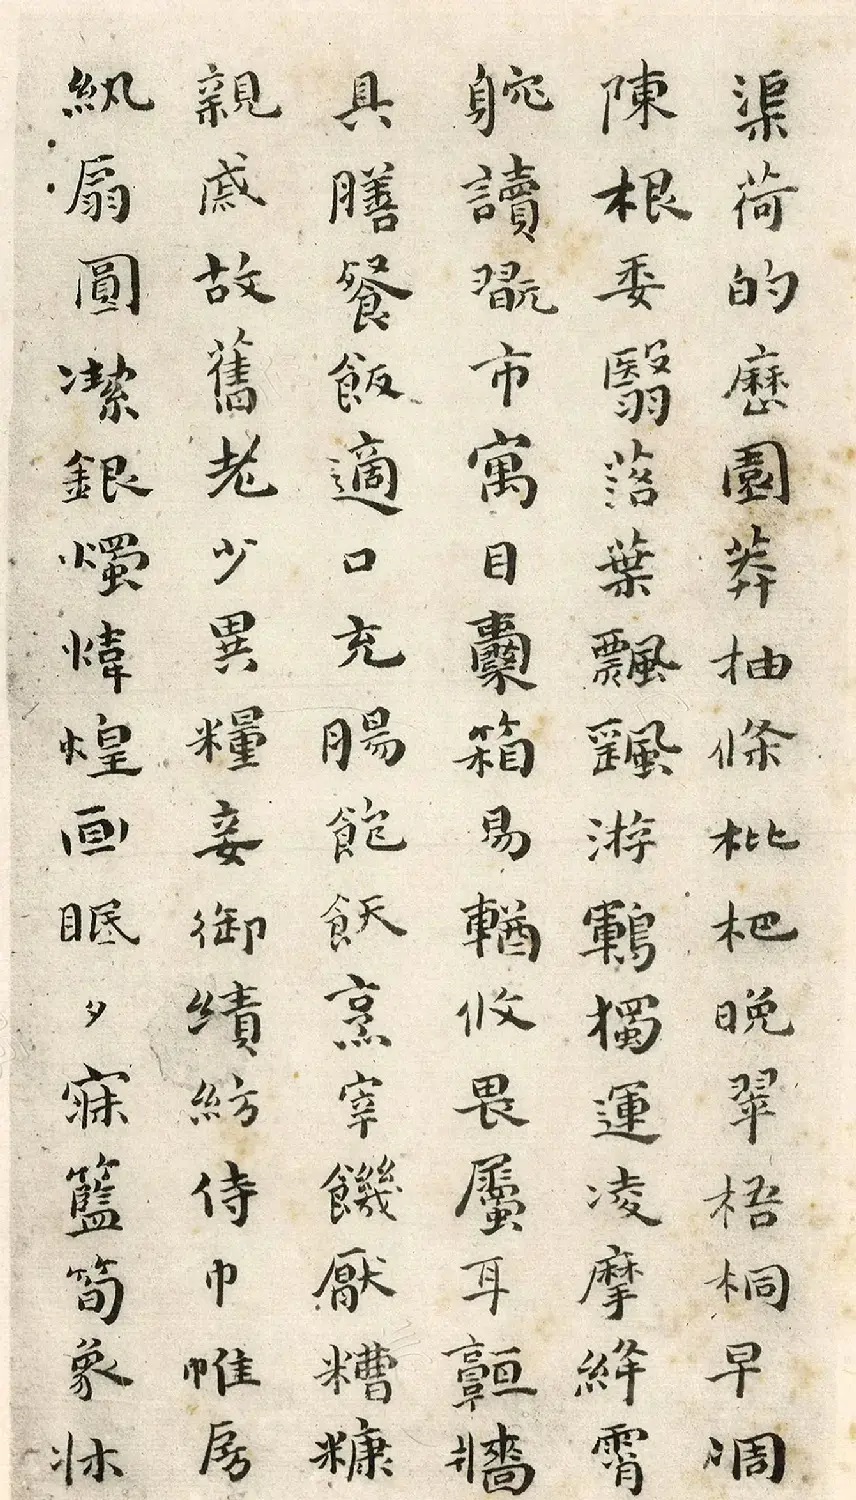 渠荷的歷園莽抽條枇杷晚翠梧桐早凋
陳根委翳落葉飄颻游鶤獨運凌摩絳霄
躭讀翫市寓目囊箱易輶攸畏屬耳垣牆
具膳飡飯適口充腸飽飫烹宰饑厭糟糠
親戚故舊老少異糧妾御績紡侍巾帷房
紈扇圓潔銀燭煒煌画眠夕寐籃筍象牀